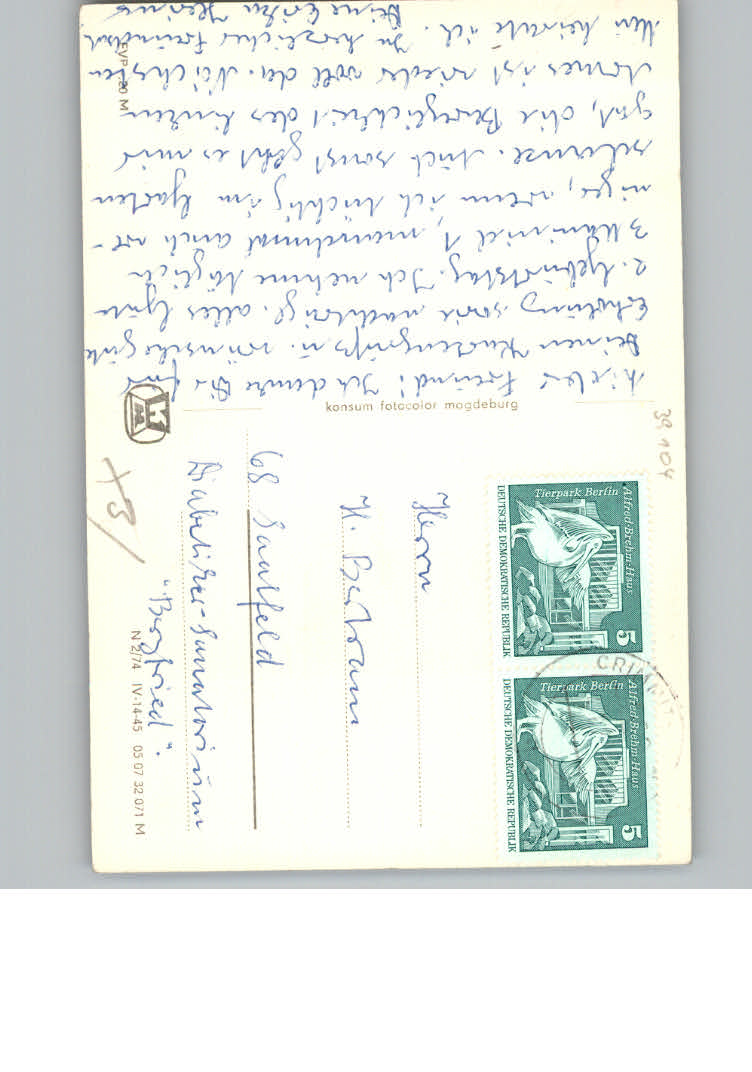 Lieber Freund! Ich danke Dir für
Deinen Kartengruß u. wünsche gute
Erholung sowie nachträgl. alles Gute
z. Geburtstag. Ich nehme täglich
3 Maninil 1, manchmal auch we-
niger, wenn ich tüchtig im Garten
schanze. Auch sonst geht es mir
gut, die Beweglichkeit des linken
Armes ist wieder voll da. Nächsten
Mai heirate ich. In herzlicher Freundschaft
Deine Erika
EVP -,20 M
konsum fotocolor magdeburg
39 104
Herrn
H. Bertram
68 Saalfeld
Diabetiker-Sanatorium
"Bergfried".
N 2/74 IV-14-45 05 07 32 071 M
Tierpark Berlin
Alfred-Brehm-Haus
DEUTSCHE DEMOKRATISCHE REPUBLIK
5
Tierpark Berlin
Alfred-Brehm-Haus
DEUTSCHE DEMOKRATISCHE REPUBLIK
5
CRIMMIT